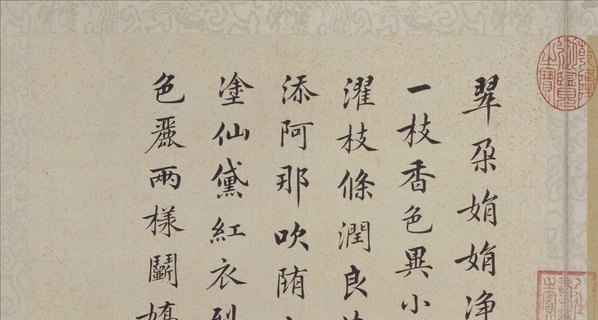 翠朶娟娟净
一枝香色異小
濯枝條潤良
添阿那吹陏
塗仙黛紅衣
色麗兩樣鬭嬌